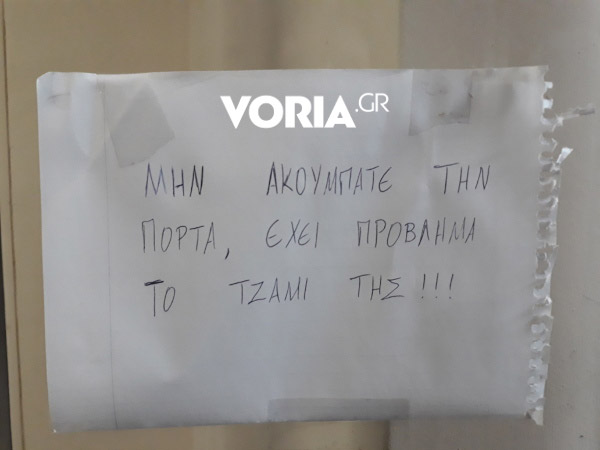 VORIA.GR
ΜΗΝ ΑΚΟΥΜΠΑΤΕ ΤΗΝ
ΠΟΡΤΑ, ΕΧΕΙ ΠΡΟΒΛΗΜΑ
ΤΟ ΤΖΑΜΙ ΤΗΣ!!!